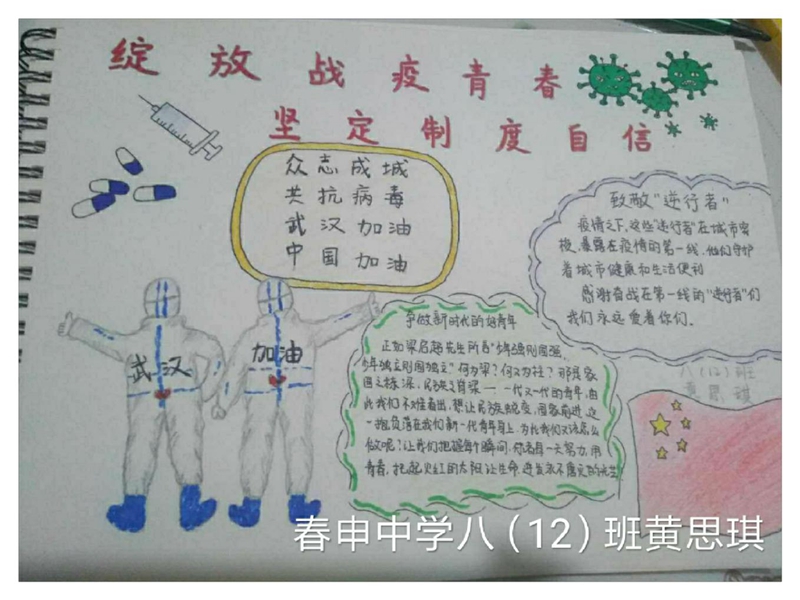 绽放战疫青春
坚定制度自信
众志成城
共抗病毒
武汉加油
中国加油
致敬“逆行者”
疫情之下,这些“逆行者”在城市穿
梭,暴露在疫情的第一线,他们守护
着城市健康和生活便利
感谢奋战在第一线的“逆行者”们
我们永远爱着你们。
武汉
加油
争做新时代的好青年
正如梁启超先生所言“少年强则国强,
少年独立则国独立”何为梁?何又为柱?那是家
国之栋梁,民族之脊梁——一代又一代的青年,由
此我们不难看出,想让民族蜕变,国家前进,这
一抱负落在我们新一代青年身上,为此我们又该怎么
做呢?让我们把握每个瞬间,你我每一天努力,用
青春,托起火红的太阳让生命
八(12)班
黄思琪
春申中学八(12)班黄思琪